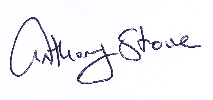 Anthony Stone